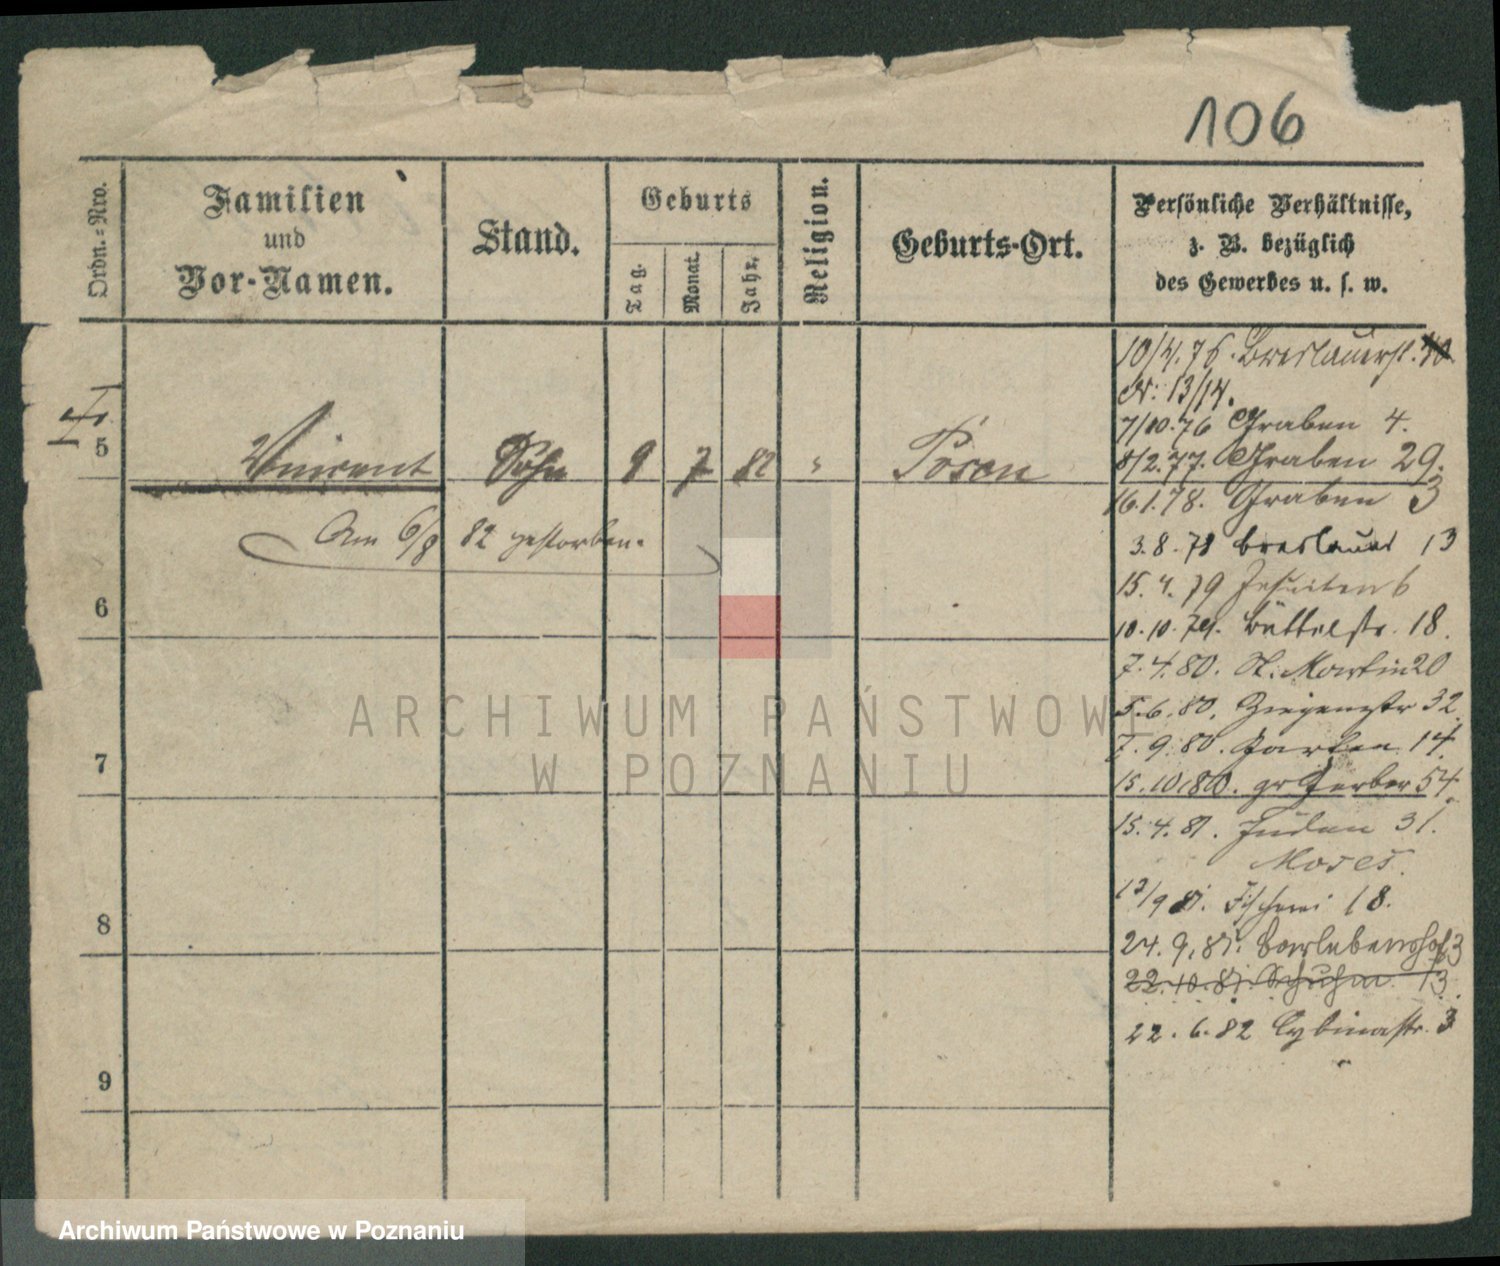 106
Ordn.-Nro.
Familien
und
Vor-Namen.
Stand.
Geburts
Tag.
Monat.
Jahr.
Religion.
Geburts-Ort.
Persönliche Verhältnisse,
z. B. bezüglich
des Gewerbes u. s. w.
5 Vincent Sohn 9 7 82 " Posen
Am 6/8 82 gestorben.
6
7
8
9
10/4.76. Breslauerst. 40
Nr: 13/14.
7/10.76 Graben 4.
8/2.77. Graben 29.
16.1.78. Graben 3
3.8.78 Breslauer 13
15.4.79 Jesuiten 6
10.10.79. Büttelstr. 18.
7.4.80. St. Martin 20
5.6.80. Ziegenstr 32.
7.9.80. Garten 14.
15.10.80. gr Gerber 54.
15.4.81. Juden 31.
Moses.
13/9 81. Fischerei 18.
24.9.81. Barlebenshof 3
22.10.81. Schuhm. 13.
22.6.82 Cybinastr. 3
ARCHIWUM PAŃSTWOWE
W POZNANIU
Archiwum Państwowe w Poznaniu